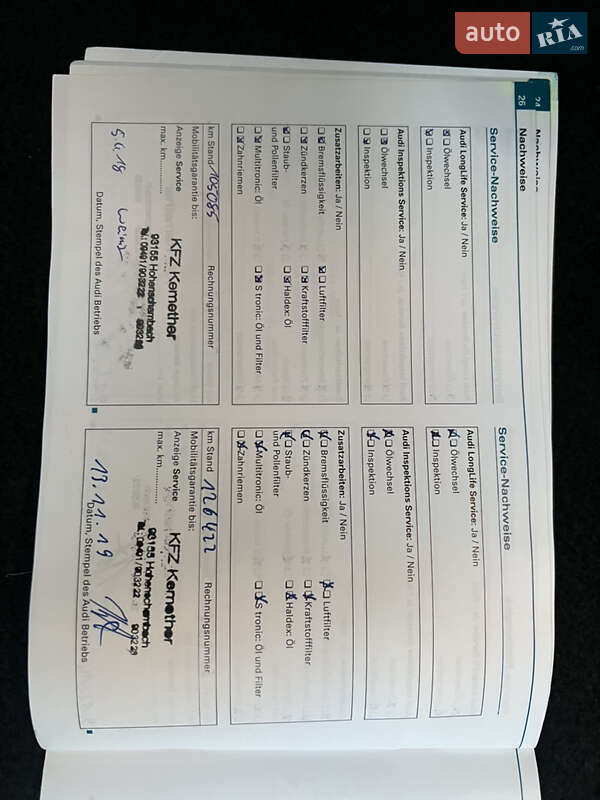 auto RIA .com
24 Nachweise
26 Nachweise
Service-Nachweise
Audi LongLife Service: Ja / Nein
Ölwechsel
Inspektion
Audi Inspektions Service: Ja / Nein
Ölwechsel
Inspektion
Zusatzarbeiten: Ja / Nein
Bremsflüssigkeit Luftfilter
Zündkerzen Kraftstofffilter
Staub- Haldex: Öl
und Pollenfilter
Multitronic: Öl S tronic: Öl und Filter
Zahnriemen
km Stand 105085 Rechnungsnummer
Mobilitätsgarantie bis:
Anzeige Service
max. km
KFZ Kemether
93155 Hohenschambach
5.4.18
Datum, Stempel des Audi Betriebs
Service-Nachweise
Audi LongLife Service: Ja / Nein
Ölwechsel
Inspektion
Audi Inspektions Service: Ja / Nein
Ölwechsel
Inspektion
Zusatzarbeiten: Ja / Nein
Bremsflüssigkeit Luftfilter
Zündkerzen Kraftstofffilter
Staub- Haldex: Öl
und Pollenfilter
Multitronic: Öl S tronic: Öl und Filter
Zahnriemen
km Stand 126422 Rechnungsnummer
Mobilitätsgarantie bis:
Anzeige Service
max. km
KFZ Kemether
93155 Hohenschambach
13.11.19
Datum, Stempel des Audi Betriebs